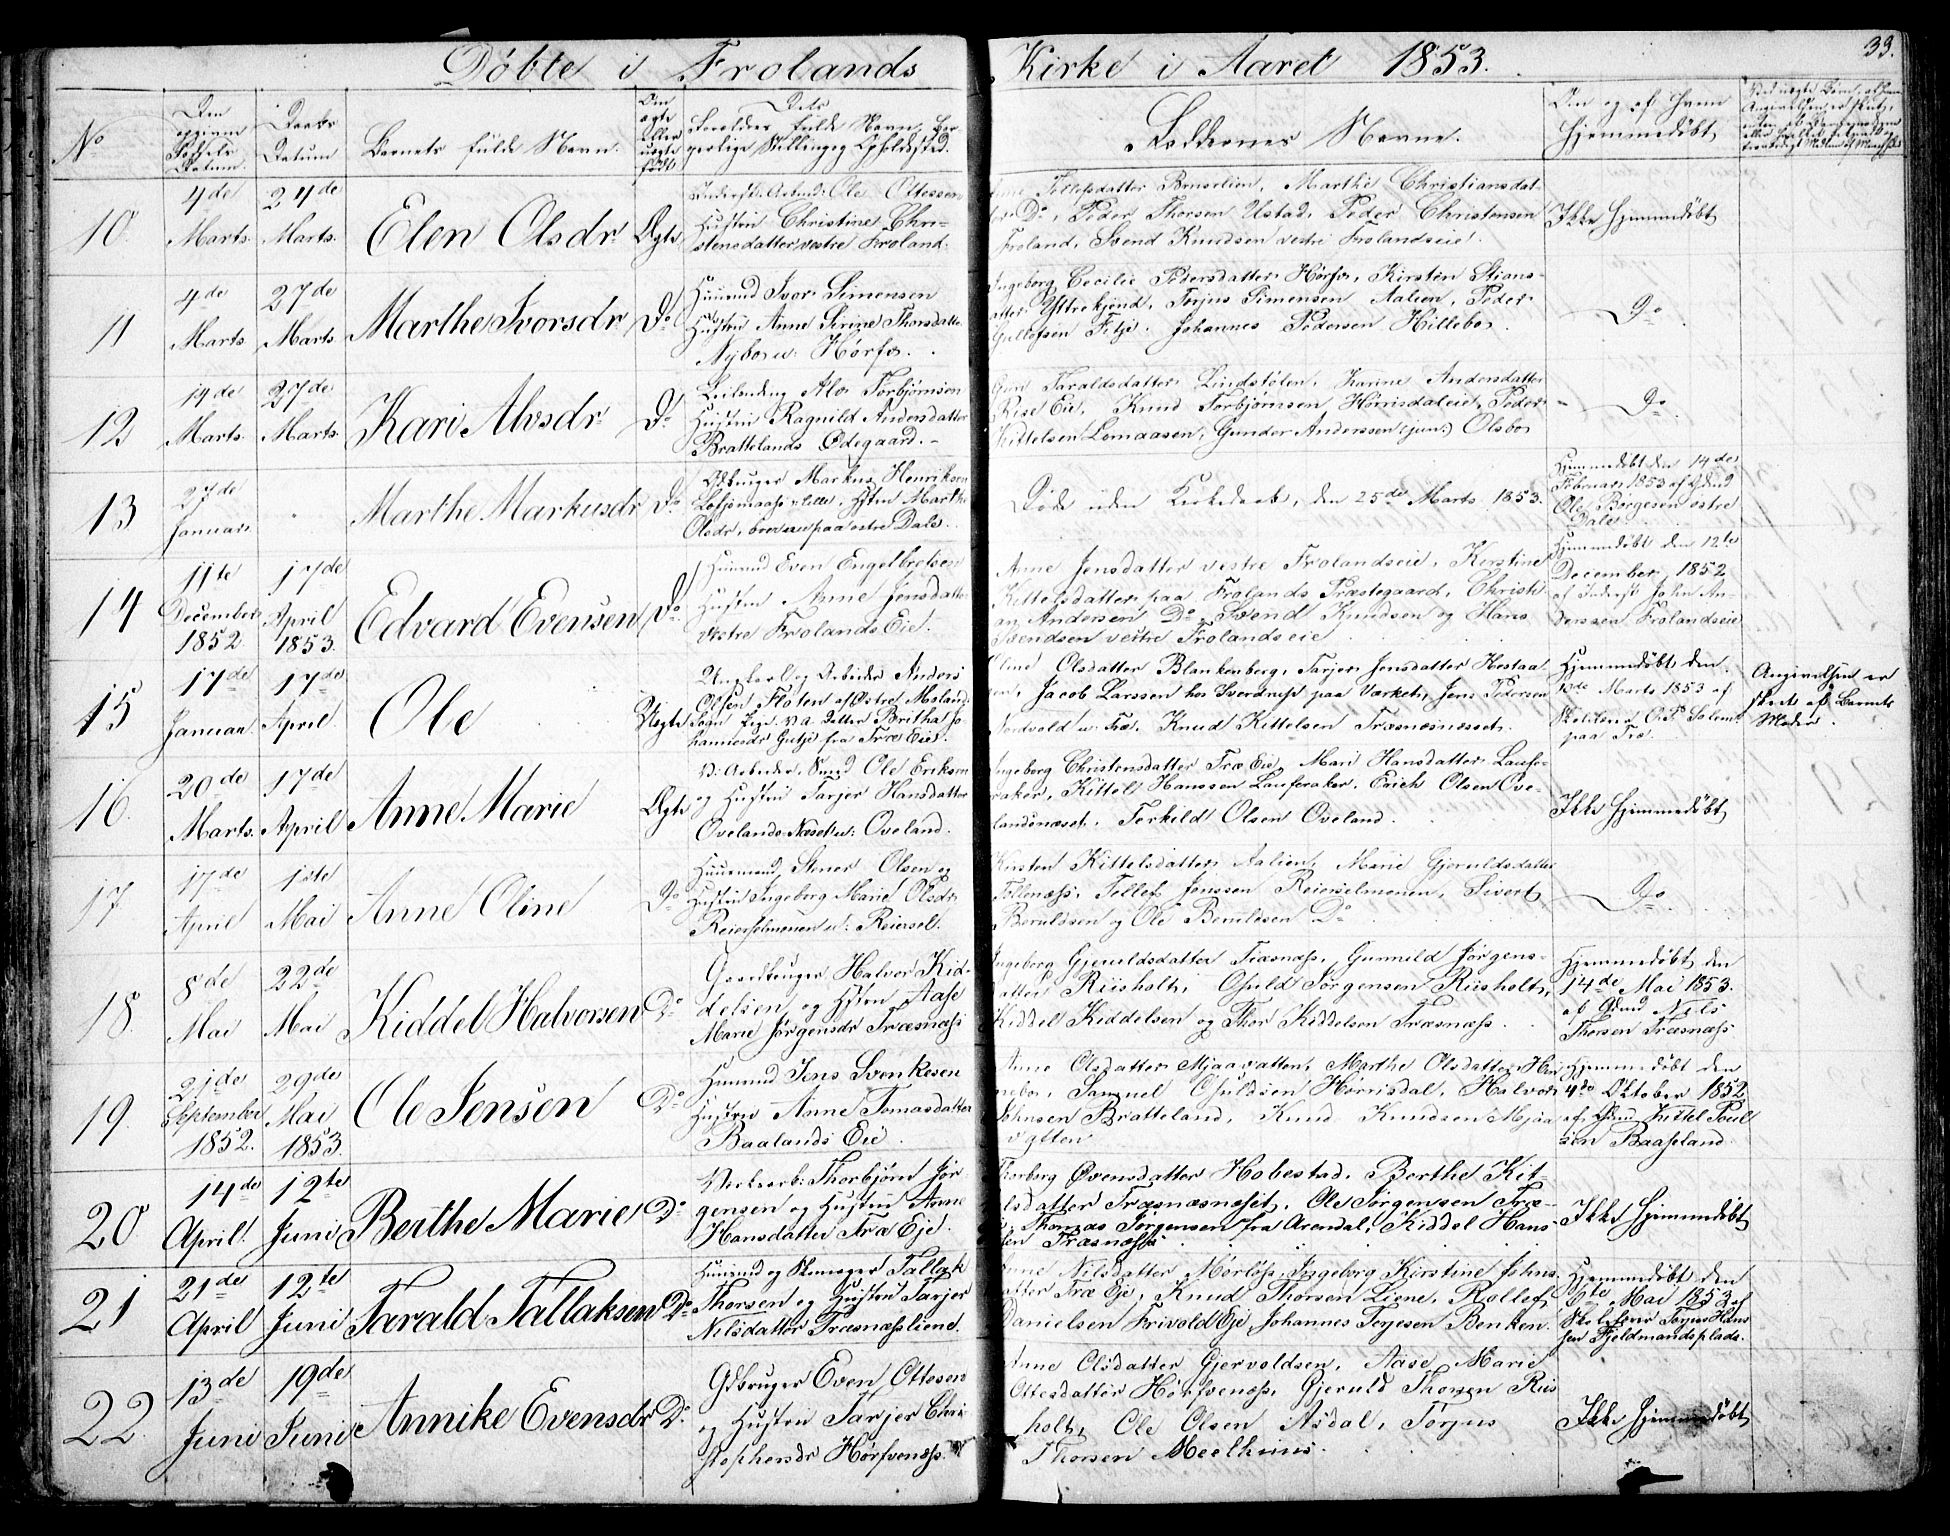 Döbte i Frolands Kirke i Aaret 1853.
33.
No
Den opgivne Födsels Datum.
Daabs Datum
Barnets fulde Navn.
Om ægte eller uægte födt
Dets Forældres fulde Navn, borgerlige Stilling og Opholdssted.
Faddernes Navne.
Om og af hvem hjemmedöbt
10.
4de Marts.
24de Marts.
Elen Olsdr
Ægte
Ole Ottessen
Hustru Christine Chri-
stensdatter, vestre Froland.
Tellefsdatter Bruselien, Marthe Christiansdat-
Do, Peder Thorsen Ustad, Peder Christensen
Froland, Svend Knudsen vestre Frolandseie.
Ikke hjemmedöbt
11
4de Marts
27de Marts
Marthe Ivorsdr
Do
Huusmd Ivor Simensen
Hustru Anne Serine Thorsdatter
Nyboe u: Hörfos.
Ingeborg Cecilie Pedersdatter Hörfos, Kirsten Stians-
datter Yttrekjönd, Terjus Simensen Aalien, Peder
Gullofsen Fitje. Johannes Pedersen Hillebo.
Do
12
14de Marts.
27de Marts.
Kari Alvsdr
Do
Leilænding Alv Torbjörnsen
Hustru Ragnild Andersdatter
Brattelands Ödegaard.
Taraldsdatter Lindstölen, Karine Andersdatter
Rise Eie, Knud Torbjörnsen Hörrisdaleiet, Peder
Kittelsen Lomaasen, Gunder Anderssen (jun:) Olsbo
Do
13
27de Januari
Marthe Markusdr
Do
Gdbruger Markus Henriksen
Hstru Marthe
Olsdr, boende paa östre Dale.
Döde uden Kirkedaab, den 25de Marts 1853.
Hjemmedöbt den 14de
Februari 1853 af Gdmd
Ole Börgesen östre
Dale
14
11te December 1852
17de April 1853.
Edvard Evensen
Do
Huusmd Even Engelbretsen
Hustru Anne Jensdatter
vestre Frolands Eie.
Anne Jensdatter vestre Frolandseie, Kirstine
Kittelsdatter paa Frolands Præstegaard, Christi-
an Andersen Do, Svend Knudsen og Hans
Svendsen vestre Frolandseie
Hjemmedöbt den 12te
December, 1852
af Inderst John An-
derssen Frolandseie
15
17de Januari.
17de April
Ole
Uægte
Ungkarl og Arbeider Anders
Olsen Floten af Östre Moland
Sogn Pige Britha Jo-
hannesdr Gutje fra Træ Eie.
Olsdatter Blankenberg, Tarjer Jensdatter Hestaa-
sen, Jacob Larssen hos Sverdrup paa Værket, Jens Pedersen
Nordvold u: Træ, Knud Kittelsen Træsnæsnesset.
Hjemmedöbt den
Marts 1853 af
Skoleholder O. P. Solem
paa Træ.
Angivelsen er
skeet af Barnets
Moder.
16.
20de Marts.
17de April
Anne Marie
Ægte
Arbeider, Smed Ole Eriksen
og Hustru Tarjer Hansdatter
Ovelands Næset u: Oveland.
Ingeborg Christensdatter Træ Eie, Mari Hansdatter Laufe-
raker, Kittel Hanssen Lauferaker, Erich Olsen Ove-
landsnæset, Terkild Olsen Oveland.
Ikke hjemmedöbt
17
17de April
1ste Mai
Anne Oline
Do
Huusmand Stener Olsen og
Hustru Ingeborg Marie Olsdr
Reierselmonen u: Reiersel.
Kirsten Kittelsdatter Aalien, Marie Gjeruldsdatter
Tellef Jenssen Reierselmonen, Sivert
Beruldsen og Ole Beruldsen Do
Do
18.
8de Mai
22de Mai
Kiddel Halvorsen
Do
Gaardbruger Halvor Kid-
delsen og Hstru Aase
Marie Jörgensdr Træsnæss
Ingeborg Gjeruldsdatter Træsnæss, Gunnild Jörgens-
datter Riisholt, Osuld Jörgensen Riisholt,
Kiddel Kiddelsen og Thor Kiddelsen Træsnæss.
Hjemmedöbt den
14de Mai 1853.
af Gdmd Nils
Thorsen Træsnæss
19.
21de September 1852.
29de Mai 1853.
Ole Jensen
Do
Huusmd Jens Svenkesen
Hustru Anne Tomasdatter
Baalands Eie.
Anne Olsdatter Mjaavatten, Marthe Olsdatter Hei-
nebo, Samuel Osuldsen Hörrisdal, Halvor
Johnsen Bratteland, Knud Knudsen Mjaa-
vatten
Hjemmedöbt den
4de Oktober 1852
af Gdmd Kittel Poul-
sen Baaseland.
20
14de April.
12te Juni
Berthe Marie
Do
Værksarb: Thorbjörn Jör-
gensen og Hustru Anne
Hansdatter Træ Eje.
Thorborg Övensdatter Hobestad, Berthe Kit-
telsdatter Træsnæsnesset, Ole Jörgensen Træ-
Thomas Jörgensen fra Arendal, Kiddel Hans-
sen Træsnæss
Ikke hjemmedöbt
21
21de April
12te Juni
Tarald Tallaksen
Do
Huusmd og Skomager Tallak
Thorsen og Hustru Tarjer
Nilsdatter Træsnæssliene.
Anne Nilsdatter Mörlös, Ingeborg Kirstine Johns-
datter Træ Eje, Knud Thorsen Liene, Rollef
Danielsen Frivold Eje, Johannes Terjesen Benken.
Hjemmedöbt den
Mai 1853 af
Skoleholder Terjus Hans-
sen Fjeldmandsplads.
22.
13de Juni
19de Juni
Annike Evensdr
Do.
Gdbruger Even Ottesen
og Hustru Tarjer Chri-
stophersdr Hörsvenæss.
Anne Olsdatter Gjervoldsen, Aase Marie
Ottesdatter Hörsvenæss, Gjeruld Thorsen Riis-
holt, Ole Olsen Asdal, Törjus
Thorsen Meelhuus.
Ikke hjemmedöbt